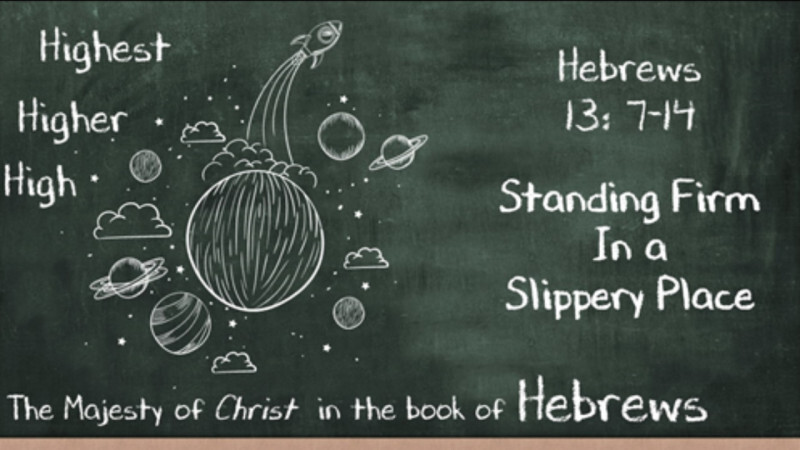 Highest
Higher
High
Hebrews
13: 7-14
Standing Firm
In a
Slippery Place
The Majesty of Christ in the book of Hebrews